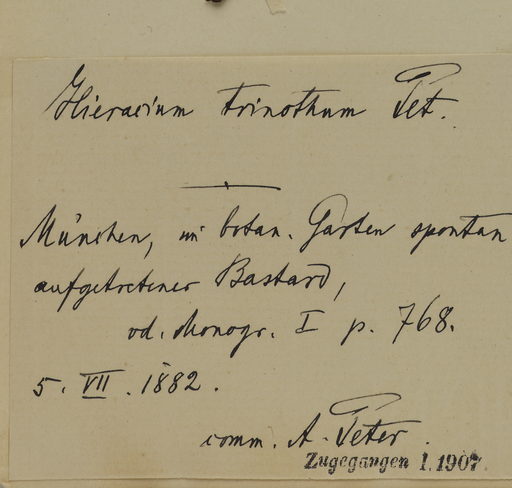 Hieracium trinothum Pet.
München, im botan. Garten spontan
aufgetretener Bastard,
vd. Monogr. I p. 768.
5. VII. 1882.
comm. A. Peter.
Zugegangen 1. 1907.